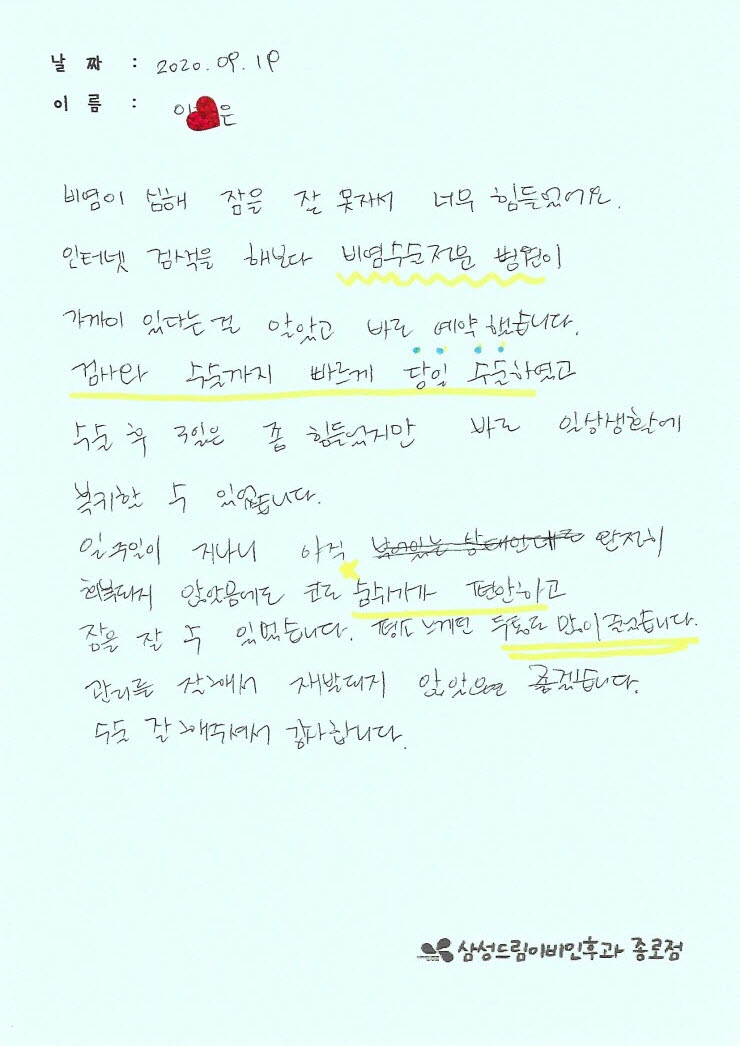 날 짜 : 2020. 09. 19
이 름 : 은
비염이 심해 잠을 잘 못자서 너무 힘들었어요.
인터넷 검색을 해보다 비염수술전문 병원이
가까이 있다는걸 알았고 바로 예약했습니다.
검사와 수술까지 빠르게 당일 수술하였고
수술 후 3일은 좀 힘들었지만 바로 일상생활에
복귀할 수 있었습니다.
일주일이 지나니 아직 완전히
회복되지 않았음에도 코로 숨쉬기가 편안하고
잠을 잘 수 있었습니다. 평소 느끼던 두통도 많이 줄었습니다.
관리를 잘해서 재발되지 않았으면 좋겠습니다.
수술 잘 해주셔서 감사합니다.
삼성드림이비인후과 종로점